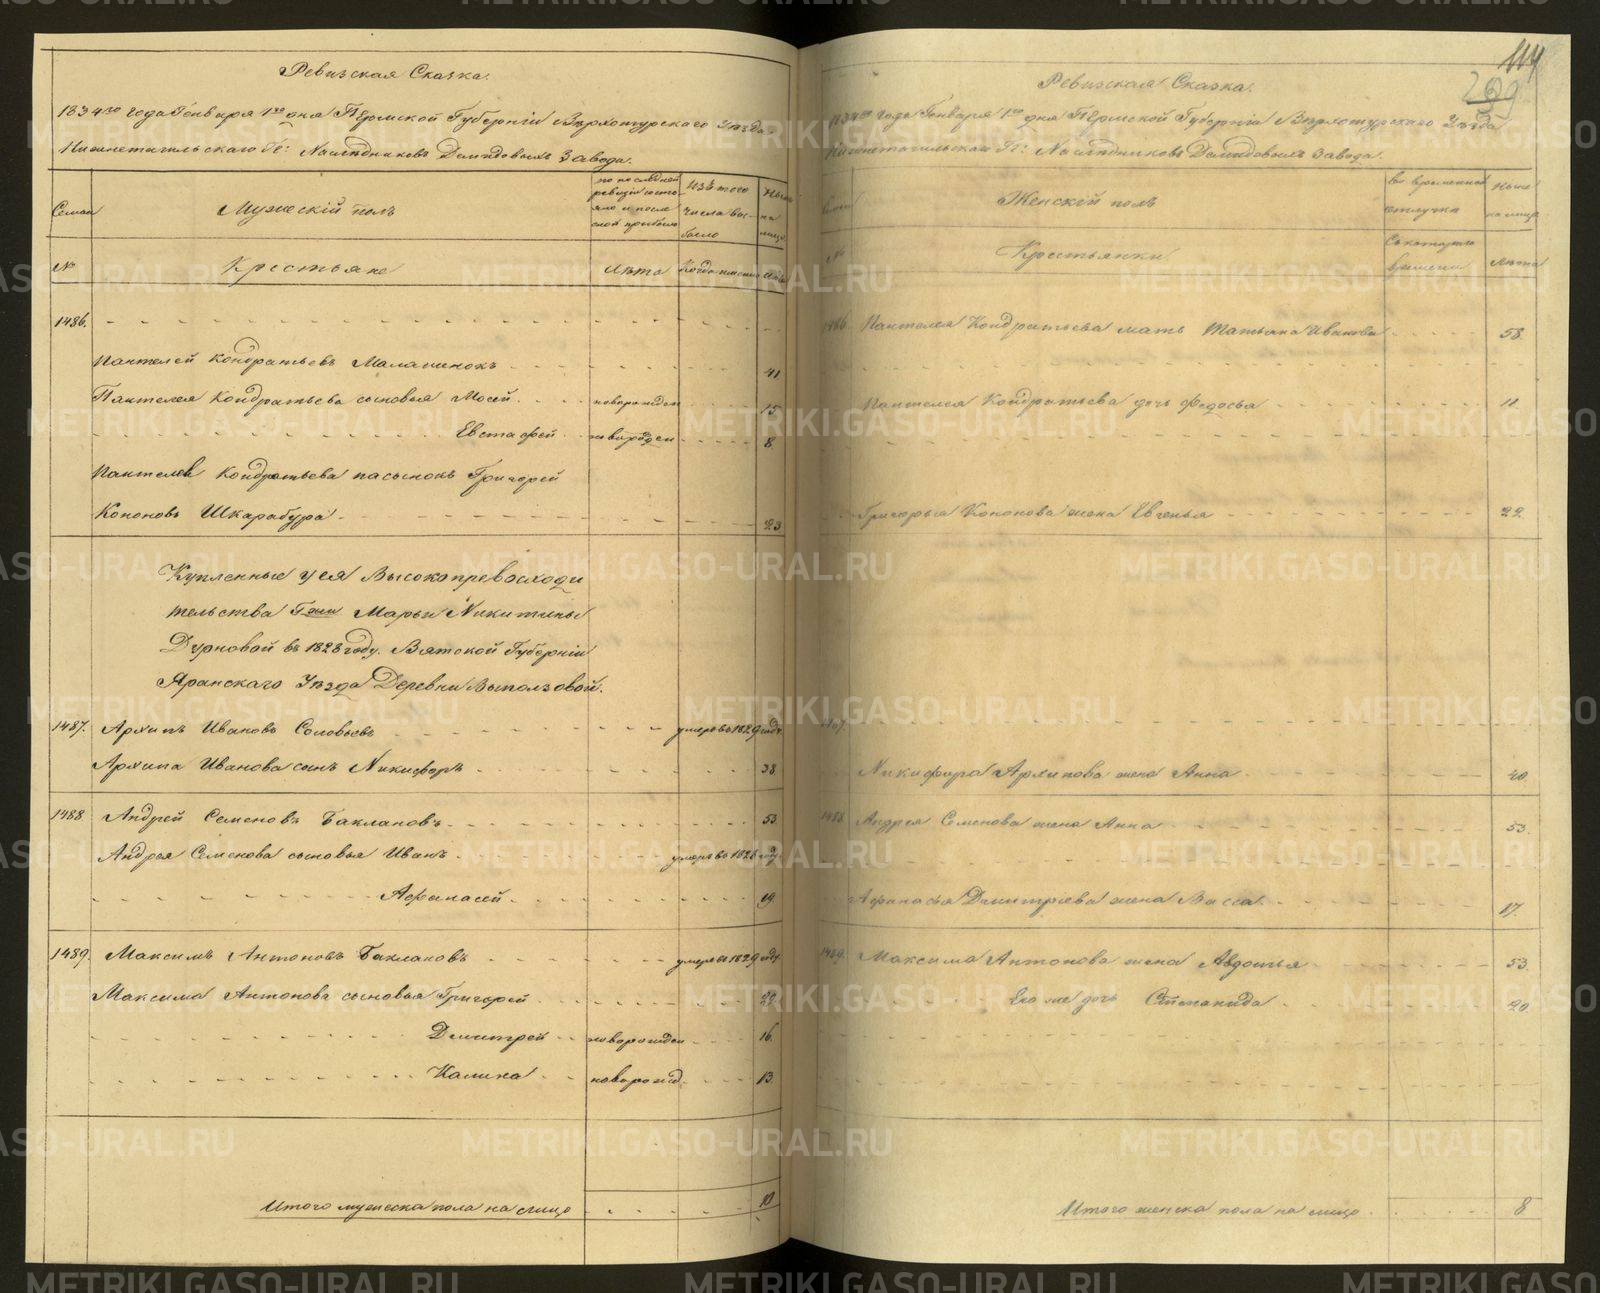 Ревизская Сказка.
1834го года Генваря 1го дня Пермской Губерніи Верхотурскаго Уѣзда
Нижнетагильскаго Гг: Наслѣдниковъ Демидовыхъ Завода.
Семьи
Мужескій полъ
по последней ревизіи состояло и после оной прибыло
Изъ того числа выбыло
Ныне на лицо
№
Крестьяне
Лѣта
Когда именно
Лѣта
1486.
Пантелей Кондратьевъ Малашенокъ 41
Пантелея Кондратьева сыновья Мосей новорожден 15
Евстафей новорожден 8
Пантелея Кондратьева пасынокъ Григорей
Кононовъ Шкарабура 23
Купленные у ея Высокопревосходи
тельства Гжи Марьи Никитины
Дурновой въ 1828 году. Вятской Губерніи
Яранскаго Уѣзда Деревни Выползовой.
1487. Архипъ Ивановъ Соловьевъ умеръ въ 1829 году
Архипа Иванова сынъ Никифоръ 38
1488 Андрей Семеновъ Баклановъ 53
Андрея Семенова сыновья Иванъ умеръ въ 1828 году
Афанасей 19
1489. Максимъ Антоновъ Баклановъ умеръ въ 1829 году
Максима Антонова сыновья Григорей 22
Дмитрей новорожден 16
Калина новорожд 13
Итого мужеска пола на лицо 10
114
299
Ревизская Сказка.
1834го года Генваря 1го дня Пермской Губерніи Верхотурскаго Уѣзда
Нижнетагильскаго Гг: Наслѣдниковъ Демидовыхъ Завода.
Семьи
Женскій полъ
во временной отлучке
Ныне на лицо
№
Крестьянки
Съ котораго времени
Лѣта
1486. Пантелея Кондратьева мать Татьяна Иванова 58
Пантелея Кондратьева дочь Федосья 11
Григорья Кононова жена Евгенья 22
1487.
Никифора Архипова жена Анна 40
1488. Андрея Семенова жена Анна 53.
Афанасья Дмитріева жена Васса 17.
1489. Максима Антонова жена Авдотья 53.
Его же дочь Степанида 20.
Итого женска пола на лицо 8
METRIKI.GASO-URAL.RU